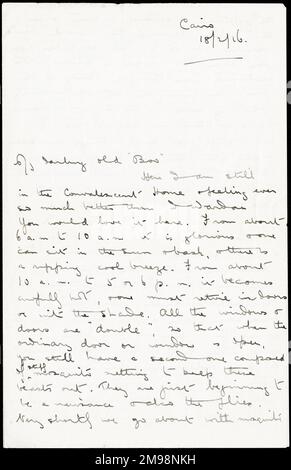 Cairo
18/2/16.
My darling old "Boo"
Here I am still
in the Convalescent Home & feeling ever
so much better than I
You would love it here. From about
6 a.m. to 10 a.m. it is glorious & one
can sit in the sun & bask, & there is
a ripping cool breeze. From about
10 a.m. to 5 or 6 p.m. it becomes
awfully hot, & one must retire indoors
or into the shade. All the windows &
doors are "double", so that when the
ordinary door or window is open,
you still have a second one composed
of stiff mosquito netting to keep these
beasts out. They are just beginning to
be a nuisance & also the flies.
Very shortly we go about with mosquito
alamy
Image ID: 2M98NKH
www.alamy.com